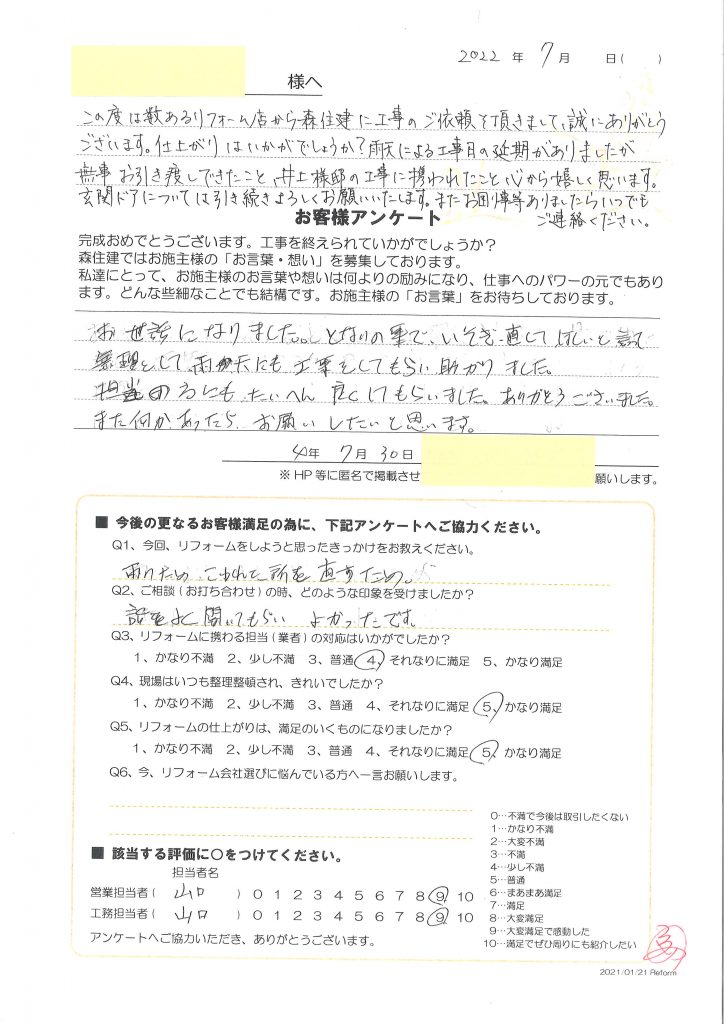 2022 年 7 月 日( )
様へ
この度は数あるリフォーム店から森住建に工事のご依頼を頂きまして、誠にありがとう
ございます。仕上がりはいかがでしょうか？雨天による工事日の延期がありましたが
無事お引き渡しできたこと、井上様邸の工事に携われたこと心から嬉しく思います。
玄関ドアについては引き続きよろしくお願いいたします。またお困り事等ありましたらいつでも
ご連絡ください。
お客様アンケート
完成おめでとうございます。工事を終えられていかがでしょうか？
森住建ではお施主様の「お言葉・想い」を募集しております。
私達にとって、お施主様のお言葉や想いは何よりの励みになり、仕事へのパワーの元でもあり
ます。どんな些細なことでも結構です。お施主様の「お言葉」をお待ちしております。
お世話になりました。となりの事で、いそぎ直してほしいと
無理をして雨天にも工事をしてもらい助かりました。
担当の方にもたいへん良くしてもらいました。ありがとうございました。
また何かあったらお願いしたいと思います。
4年 7月 30日
※HP等に匿名で掲載させ
願いします。
■ 今後の更なるお客様満足の為に、下記アンケートへご協力ください。
Q1、今回、リフォームをしようと思ったきっかけをお教えください。
雨りため、こわれた所を直すため。
Q2、ご相談（お打ち合わせ）の時、どのような印象を受けましたか？
話をよく聞いてもらい よかったです。
Q3、リフォームに携わる担当（業者）の対応はいかがでしたか？
1、かなり不満 2、少し不満 3、普通 4、それなりに満足 5、かなり満足
Q4、現場はいつも整理整頓され、きれいでしたか？
1、かなり不満 2、少し不満 3、普通 4、それなりに満足 5、かなり満足
Q5、リフォームの仕上がりは、満足のいくものになりましたか？
1、かなり不満 2、少し不満 3、普通 4、それなりに満足 5、かなり満足
Q6、今、リフォーム会社選びに悩んでいる方へ一言お願いします。
0…不満で今後は取引したくない
1…かなり不満
2…大変不満
3…不満
4…少し不満
5…普通
6…まあまあ満足
7…満足
8…大変満足
9…大変満足で感動した
10…満足でぜひ周りにも紹介したい
■ 該当する評価に○をつけてください。
担当者名
営業担当者（ 山口 ）0 1 2 3 4 5 6 7 8 9 10
工務担当者（ 山口 ）0 1 2 3 4 5 6 7 8 9 10
アンケートへご協力いただき、ありがとうございます。
2021/01/21 Reform